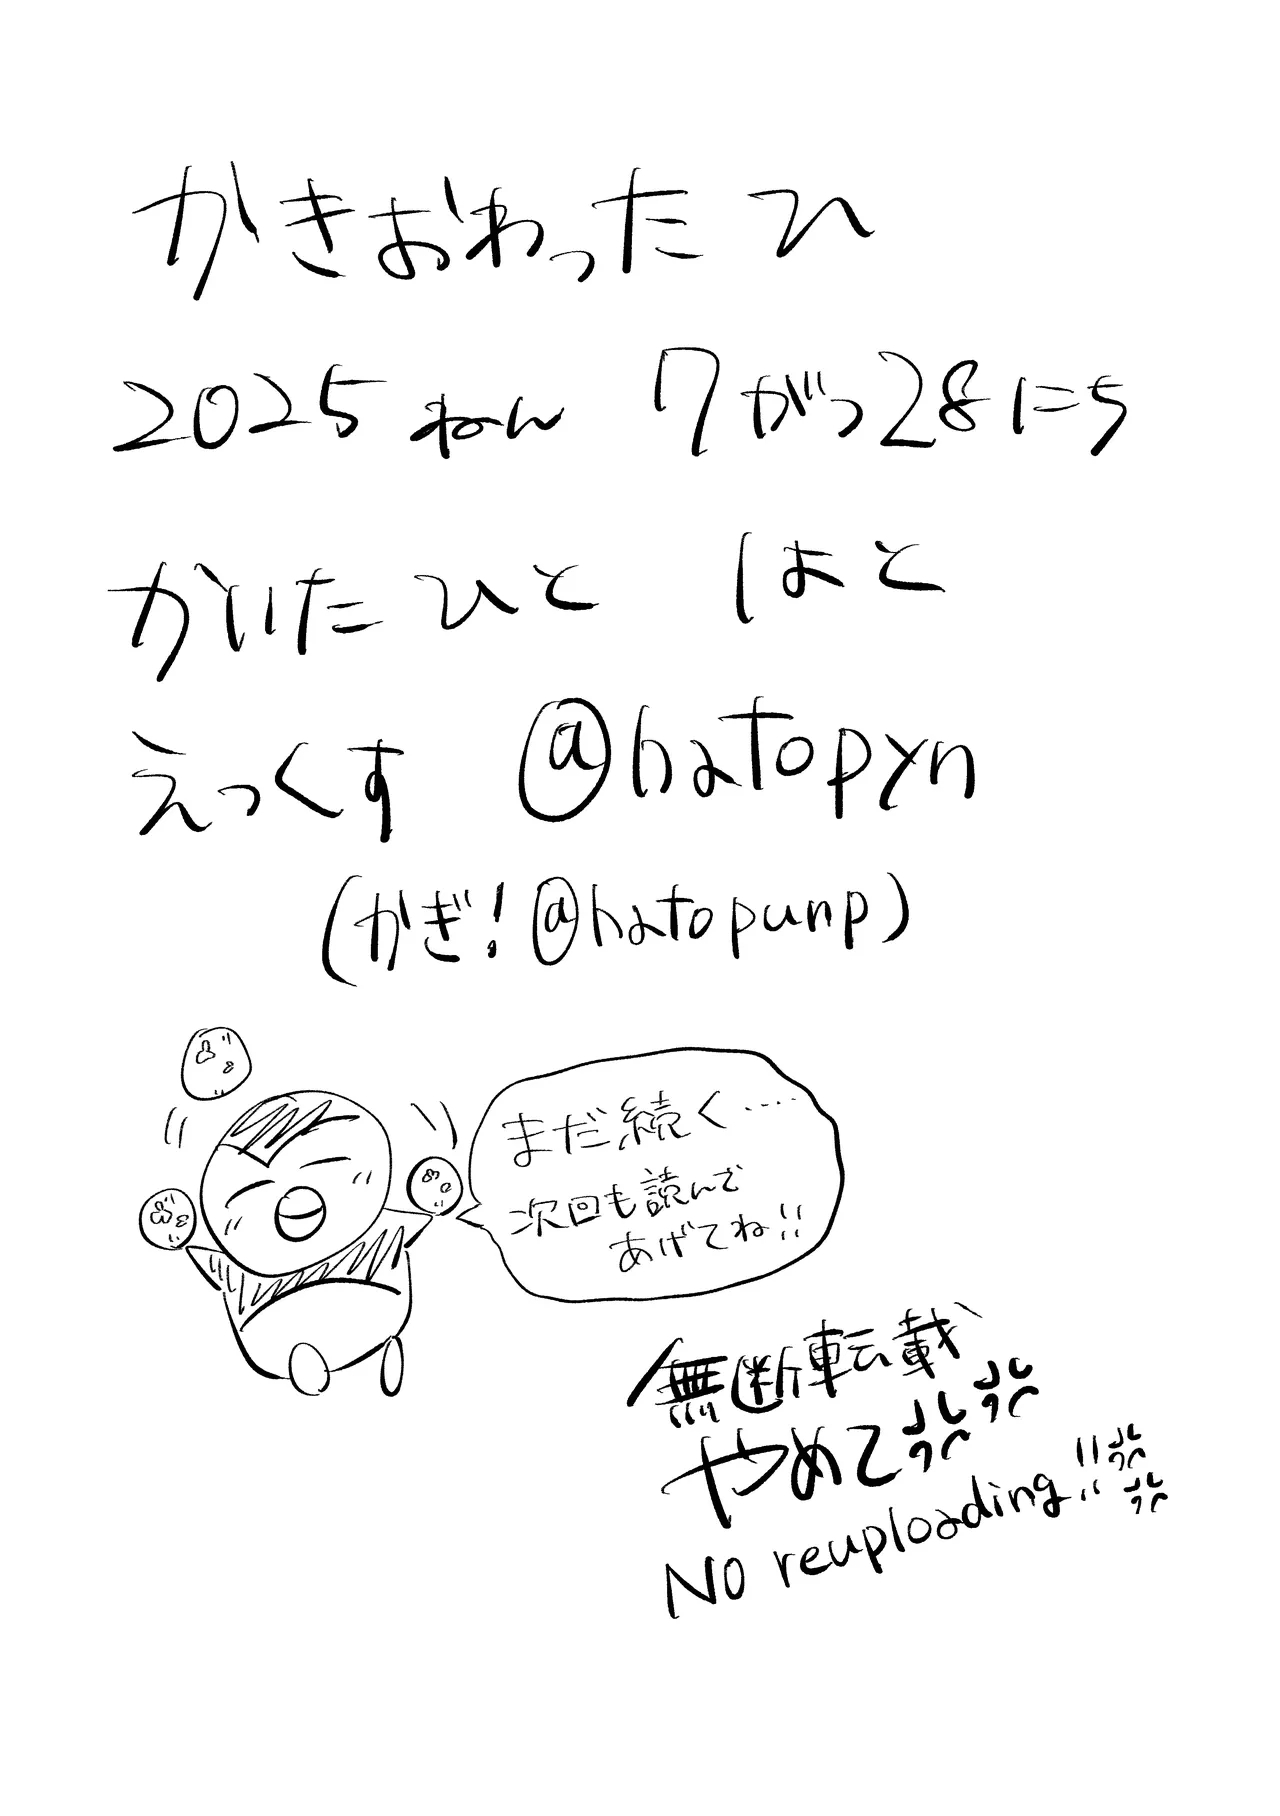 かきおわったひ
2025ねん 7がつ28にち
かいたひと はと
えっくす @hatopyn
(かぎ! @hatopunp)
まだ続く……
次回も読んで
あげてね!!
無断転載
やめて
No reuploading!!